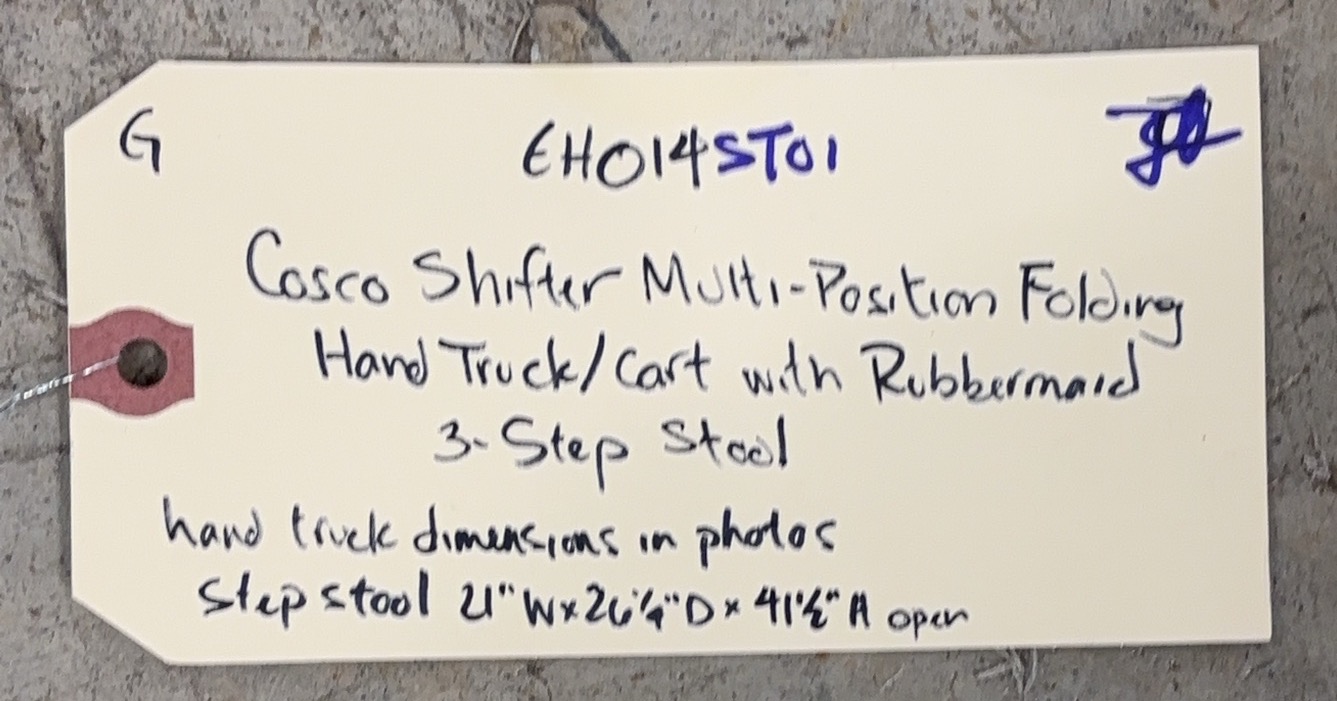 G
EHO14STO1
Cosco Shifter Multi-Position Folding
Hand Truck/Cart with Rubbermaid
3-Step Stool
hand truck dimensions in photos
step stool 21" W x 26¼" D x 41½" H open